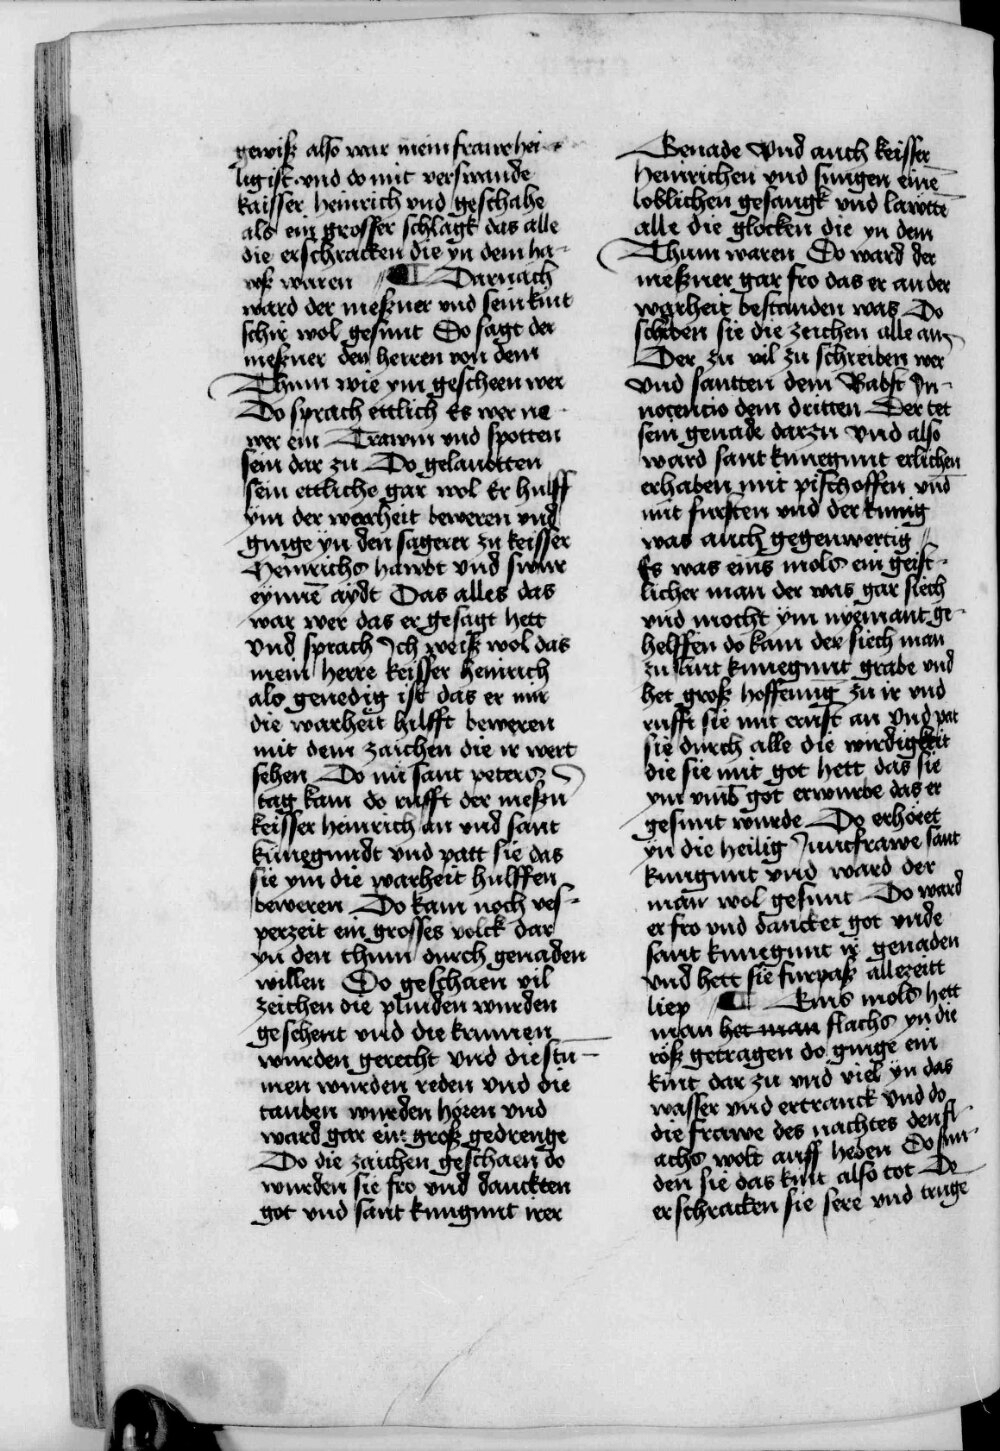 gewiß also war mein fraw hei-
lig ist · vnd do mit verswande
kaisser heinrich vnd geschahe
als ein grosser schlagk das alle
die erschracken die yn dem ha-
wß waren // ¶ Darnach
ward der meßner vnd sein kint
schir wol gesunt Do sagt der
meßner den herren von dem
Thum wie ym gescheen wer
Do sprach ettlich Es wer ne
wer ein Trawm vnd spotten
sein dar zu Do gelaubtten
sein ettliche gar wol Er hulff
ym der warheit beweren vnd
ginge yn den sagerer zu keisser
Heinrichs hawbt vnd swur
eynnē aydt Das alles das
war wer das er gesagt hett
vnd sprach Ich weiß wol das
mein herre keisser heinrich
als genedig ist das er mir
die warheit hilfft beweren
mit dem zaichen die ir wert
sehen Do nu sant peters
tag kam do rufft der meßn̄
keisser heinrich an vnd sant
kunegundt vnd patt sie das
sie ym die warheit hulffen
beweren Do kam noch ves-
perzeit ein grosses volck dar
yn den thum durch genaden
willen Do geschaen vil
zeichen die plinden wurden
gesehent vnd die krummen
wurden gerecht vnd die stū-
men wurden reden vnd die
tauben wurden hören vnd
ward gar ein groß gedrenge
Do die zaichen geschaen do
wurden sie fro vnd danckten
got vnd sant kungunt irer
Genade vnd auch keisser
heinrichen vnd sungen einē
loblichen gesangk vnd lawttē
alle die glocken die yn dem
Thum waren Do ward der
meßner gar fro das er an der
warheit bestanden was Do
schriben sie die zeichen alle an
Der zu vil zu schreiben wer
vnd santten dem Babst In-
nocencio dem dritten Der tet
sein genade darzu vnd also
ward sant kunegunt erlichen
erhaben mit pischoffen vnd
mit fursten vnd der kunig
was auch gegenwertig //
Es was eins mols ein geist-
licher man der was gar siech
vnd mocht ym nyemant ge-
helffen do kam der siech man
zu sant kunegunt grabe vnd
het groß hoffenung zu ir vnd
rufft sie mit ernst an vnd pat
sie durch alle die wirdigkeit
die sie mit got hett das sie
ym vmb got erwurbe das er
gesunt wurde Do erhöret
yn die heilig Junckfrawe sant
kungunt vnd ward der
man wol gesunt Do ward
er fro vnd dancket got vnde
sant kunegunt ir genaden
vnd hett sie furpaß allezeitt
liep // ¶ Eins mols hett
man het man flachs yn die
röß getragen do ginge ein
kint dar zu vnd viel yn das
wasser vnd ertranck vnd do
die frawe des nachtes den fl-
achs wolt auff heben Do fun-
den sie das kint also tot Do
erschracken sie sere vnd truge